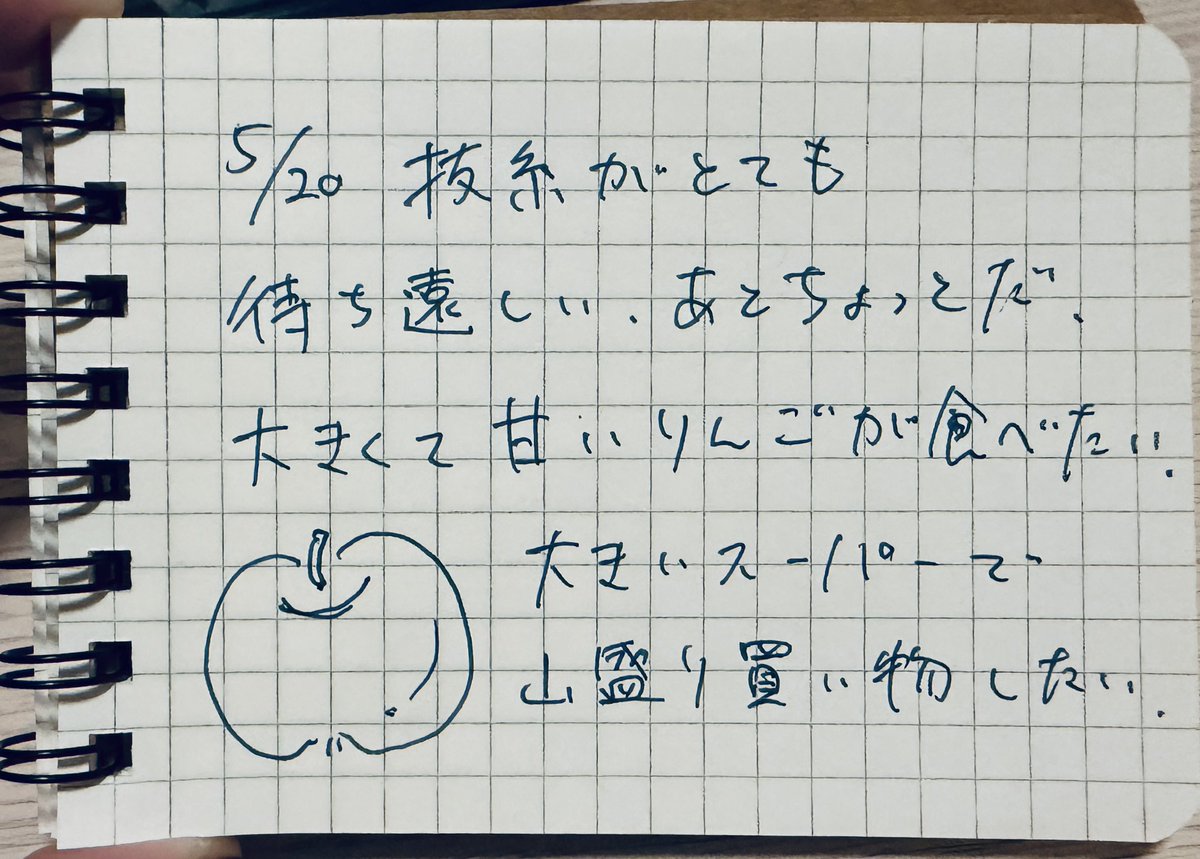 5/20 抜糸がとても
待ち遠しい.あとちょっとだ.
大きくて甘いりんごが食べたい.
大きいスーパーで
山盛り買い物したい.